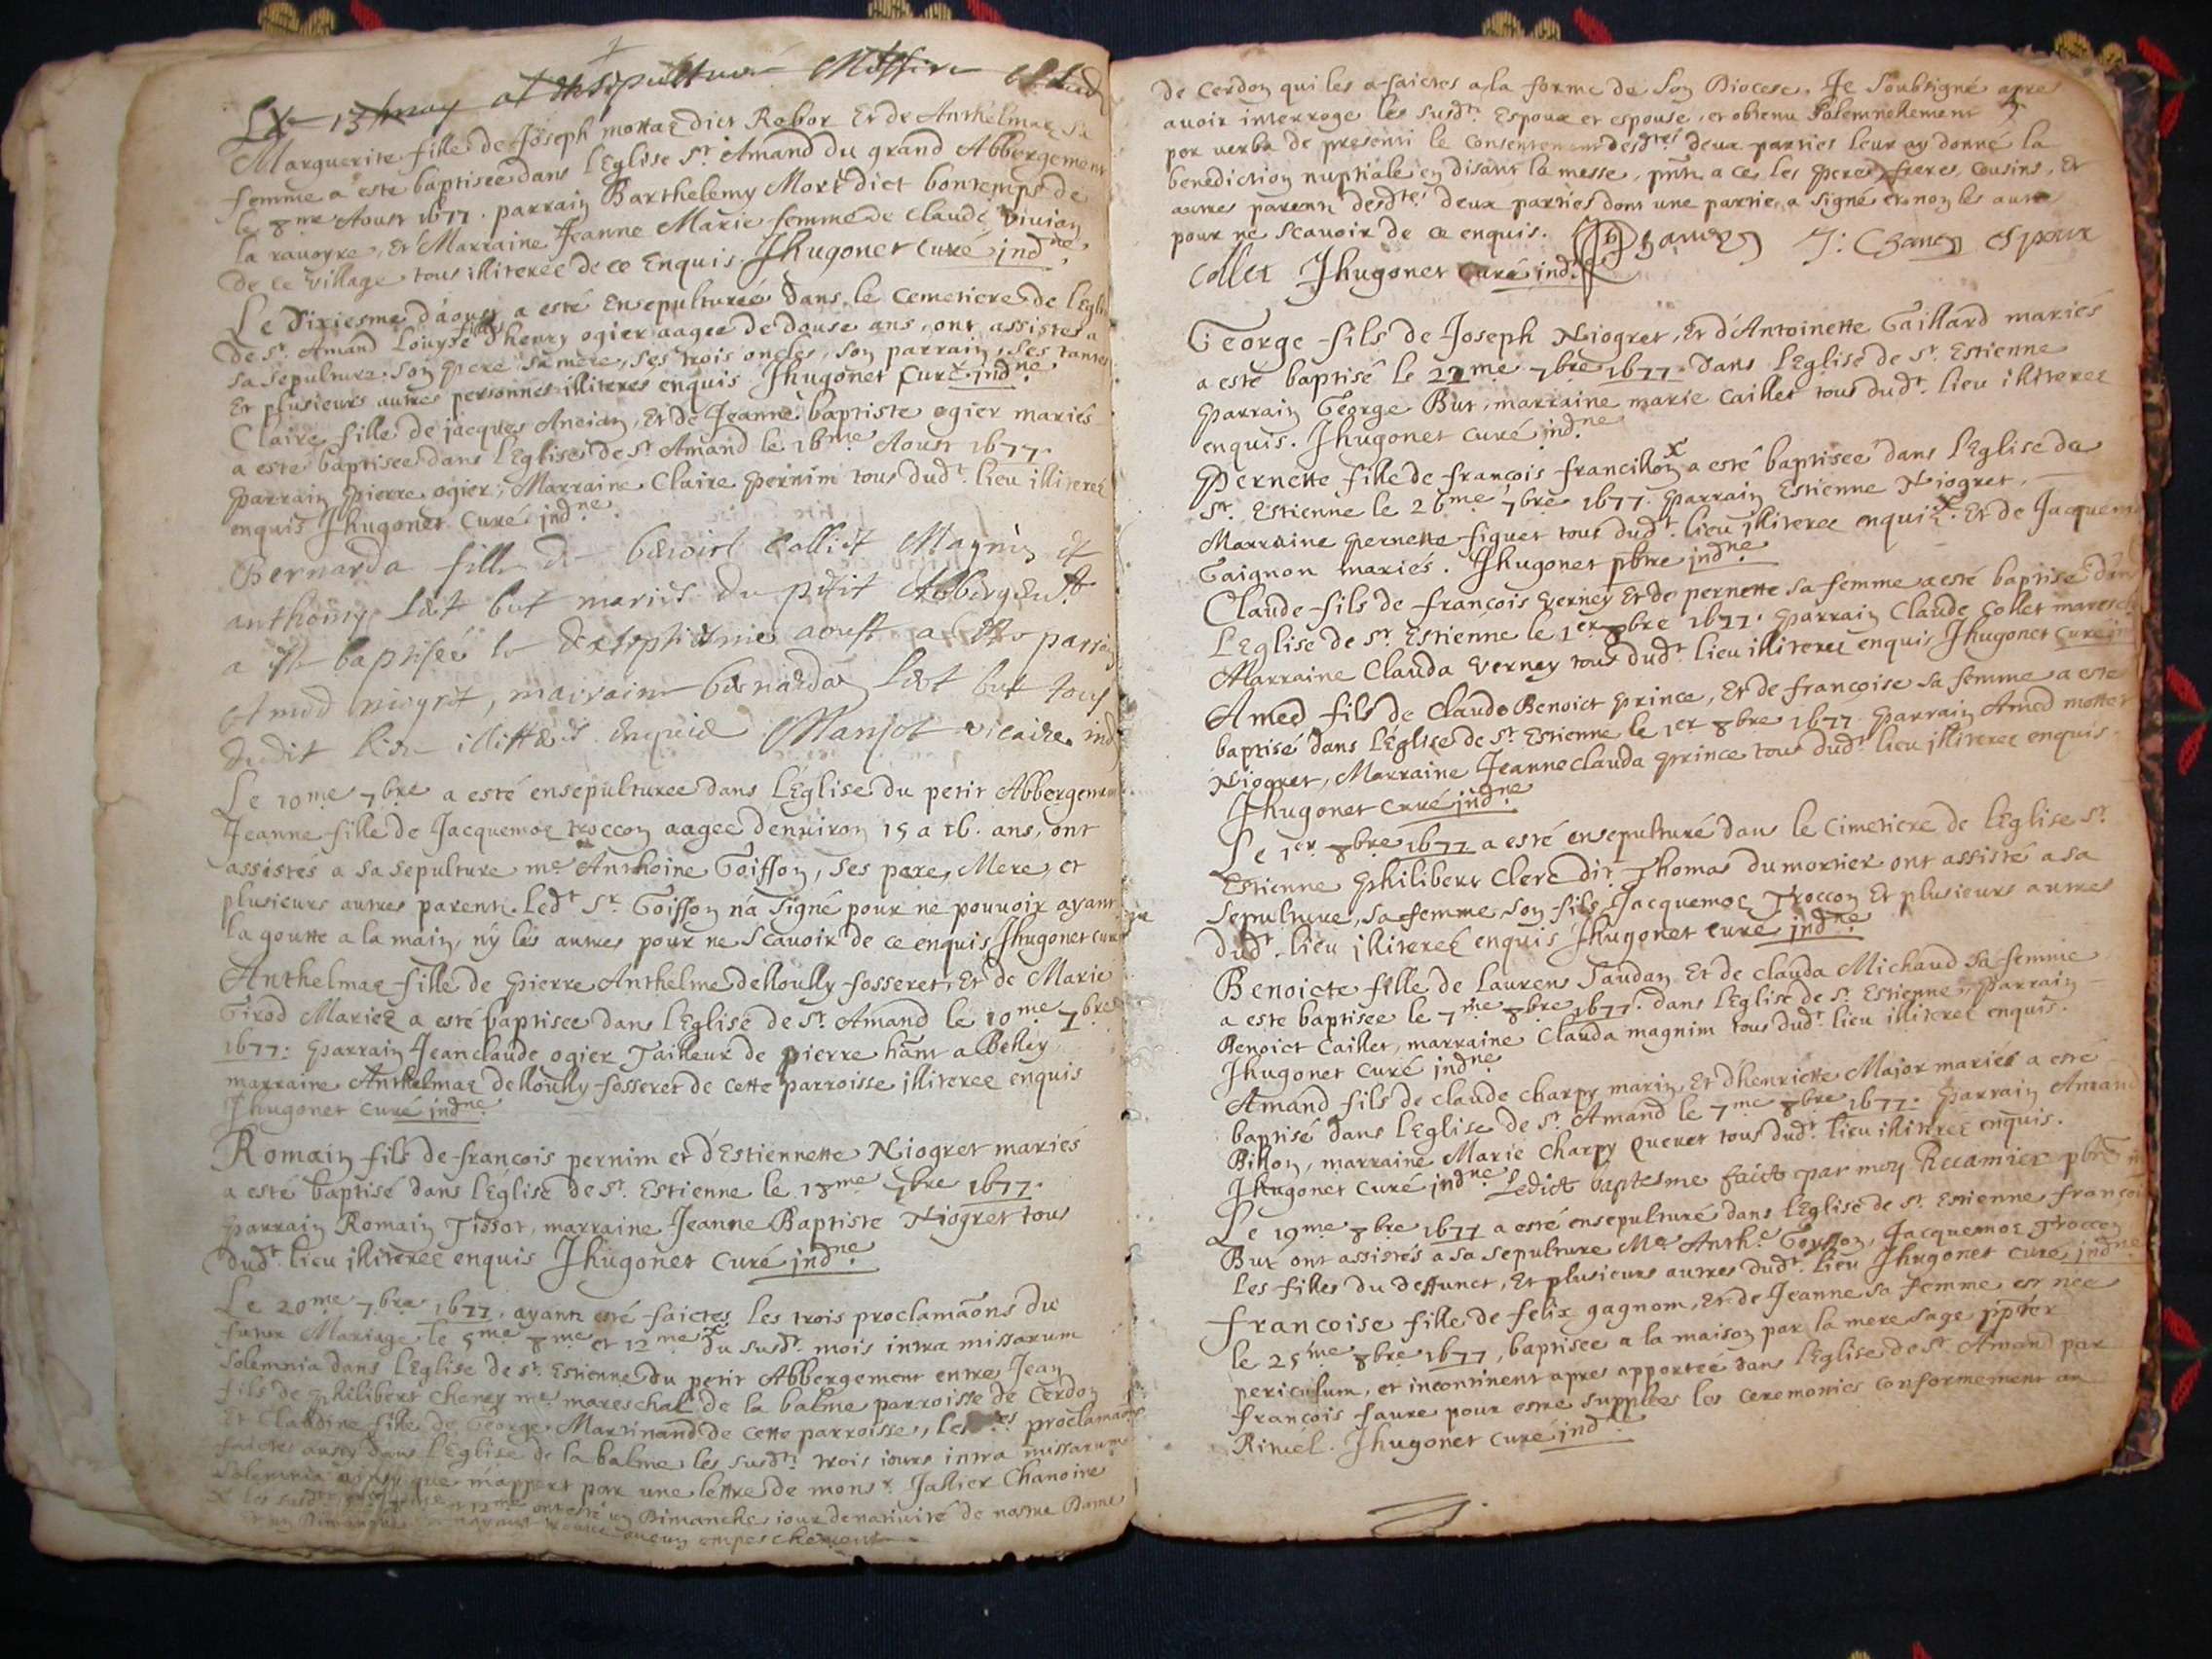 Le 13 may at ensepulturé Messire
Marguerite fille de Joseph mottaz dict Rebor Et de Anthelmaz sa
femme a esté baptisée dans l'Eglise St. Amand du grand Abbergement
le 8me Aoust 1677. parrain Barthelemy Moré dict bontemps de
la rauoyre, Et Marraine Jeanne Marie femme de claude viuian
de ce village tous illiterez de ce Enquis Jhugonet curé indne.
Le dixiesme d'aoust a esté Ensepulturée dans le cemetiere de l'Eglise
de St. Amand Louyse fille d'henry ogier aagee de douse ans, ont assistez a
sa sepulture son pere sa mere, ses trois oncles, son parrain, ses tantes
Et plusieurs autres personnes illiteres enquis Jhugonet Curé indne
Claire fille de jacques Ancian, Et de Jeanne baptiste ogier mariés
a esté baptisée dans l'Eglise de St Amand le 16me Aoust 1677.
parrain pierre ogier, Marraine Claire pernim tous dudt. lieu illiterez
enquis Jhugonet Curé indne.
Bernarda fille de benoist Collict Magnin et
anthoinyne but mariés du petit Abbergemt
a esté baptisée le dixseptiesme aoust parrain
Amed niogret, marraine bernarda but tous
dudit lieu illitterés enquis Manjot vicaire ind
Le 10me 7bre a esté ensepulturée dans l'Eglise du petit Abbergement
Jeanne fille de Jacquemoz troccon aagee denuiron 15 a 16. ans, ont
assistés a sa sepulture me Anthoine Goiffon, ses pere, Mere, et
plusieurs autres parents. Ledt Sr. Goiffon n'a signé pour ne pouuoir ayant
la goutte a la main, ny les autres pour ne scauoir de ce enquis Jhugonet curé
Anthelmaz fille de pierre Anthelme delloully fosseret, Et de Marie
Girod Mariez a esté baptisée dans l'Eglise de St. Amand le 10me 7bre
1677. parrain Jeanclaude ogier Tailleur de pierre hant a Belley
marraine Anthelmaz delloully fosseret de cette parroisse illiterez enquis
Jhugonet curé indne
Romain fils de francois pernim et d'Estiennette Niogret mariés
a esté baptisé dans l'Eglise de St. Estienne le 18me 7bre 1677.
parrain Romain Tissot, marraine Jeanne Baptiste Niogret tous
dudt. lieu illiterez enquis Jhugonet Curé indne.
Le 20me 7bre 1677. ayant esté faictes les trois proclamaons du
futur Mariage le 5me 8me et 12me du susdt. mois intra missarum
solemnia dans l'Eglise de st. Estienne du petit Abbergement entre Jean
fils de philibert chaney me mareschal de la balme parroisse de Cerdon
Et Claudine fille de George Martinand de cette parroisse, les proclamaons
faictes aussy dans l'Eglise de la balme les susdts. trois iours intra missarum
solemnia ainsy que m'appert par une lettre de monsr. Jallier Chanoine
x les susdts ont esté un Dimanche iour de natiuité de nostre Dame
Et un Dimanche aucun empeschement
de Cerdon qui les a faictes a la forme de son Diocese. Je soubsigné apres
auoir interrogé les susdts. Espoux et espouse, et obtenu solemnelement
per verba de presenti le consentement desdtes deux parties leur ay donné la
benediction nuptiale en disant la messe, pnts. a ce les peres, freres, cousins, Et
autres parents desdtes deux parties dont une partie a signé et non les autres
pour ne scauoir de ce enquis. J: Chaney espoux
Collet Jhugonet curé ind.
George fils de Joseph Niogret, Et d'Antoinette Gaillard mariés
a esté baptisé le 22me 7bre 1677. dans l'Eglise de St. Estienne
parrain George But, marraine marie caillet tous dudt. lieu illiterez
enquis. Jhugonet curé indne
Pernette fille de francois francillon x a esté baptisée dans l'Eglise de
St. Estienne le 26me 7bre 1677. parrain Estienne Niogret,
Marraine pernette figuet tous dudt. lieu illiterez enquiz. x Et de Jacquema
Gaignon mariés. Jhugonet pbtre indne
Claude fils de francois verney Et de pernette sa femme a esté baptisé dans
L'Eglise de St. Estienne le 1er 8bre 1677. parrain Claude Collet maresch
Marraine Clauda Verney tous dudt. lieu illiterez enquis Jhugonet Curé in
Amed fils de Claude Benoict prince, Et de francoise sa femme a esté
baptisé dans l'Eglise de St Estienne le 1er 8bre 1677 parrain Amed mottet
Niogret, Marraine Jeanne clauda prince tous dudt. lieu illiterez enquis.
Jhugonet curé indne
Le 1er 8bre 1677 a esté ensepulturé dans le cimetiere de l'Eglise St.
Estienne philibert Clerc dit Thomas dumortier ont assisté a sa
sepulture, sa femme, son fils, Jacquemoz Troccon Et plusieurs autres
dudt. lieu illiterez enquis Jhugonet curé indne.
Benoicte fille de Laurens Sandan, Et de clauda Michaud sa femme
a esté baptisée le 7me 8bre 1677. dans l'Eglise de St. Estienne, parrain
Benoict Caillet, marraine Clauda magnim tous dudt. lieu illiterez enquis.
Jhugonet Curé indne
Amand fils de claude charpy marin, Et d'henriette Major mariés a esté
baptisé dans l'Eglise de St. Amand le 7me 8bre 1677. parrain Amand
Billon, marraine Marie Charpy Queret tous dudt. lieu illiterez enquis.
Jhugonet Curé indne. Ledict baptesme faict par moy Recamier pbre
Le 19me 8bre 1677 a esté ensepulturé dans l'Eglise de St. Estienne francois
But ont assistés a sa sepulture Me Anthe Goyffon, Jacquemoz Troccon
Les filles du deffunct, Et plusieurs autres dudt. lieu Jhugonet curé indne
francoise fille de felix gagnom, Et de Jeanne sa femme est nee
le 25me 8bre 1677, baptisée a la maison par la mere sage ppter
periculum, et incontinent apres apportée dans l'Eglise de St. Amand par
francois faure pour estre supplées les ceremonies conformement au
Rituel. Jhugonet curé ind